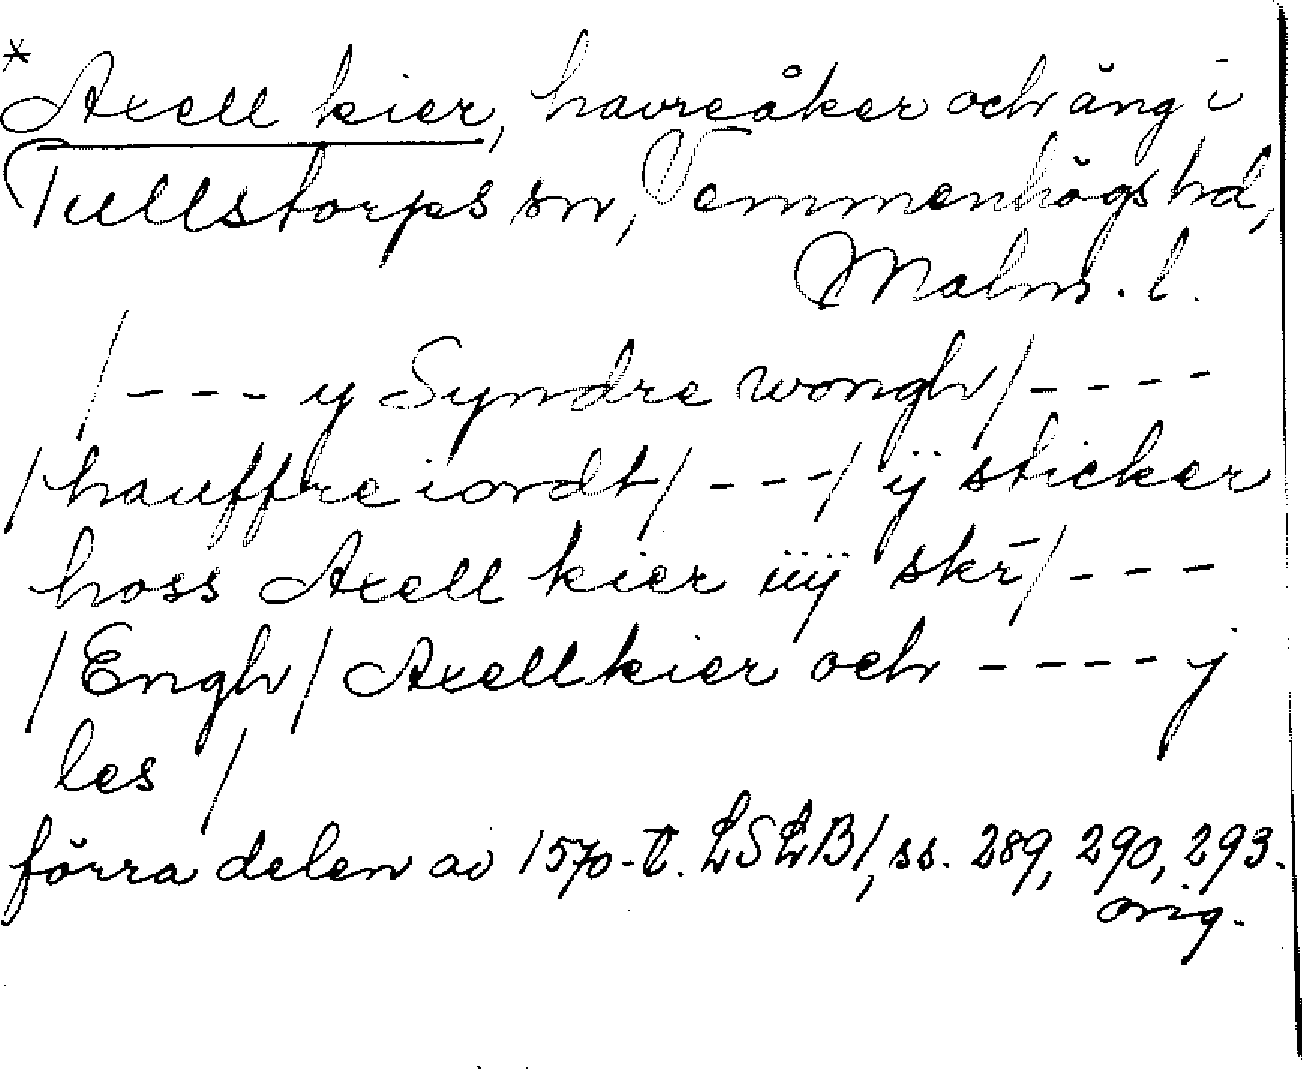 * Axell kier, havreåker och äng i
Tullstorps sn, Vemmenhögs hd,
Malm. l.
/ - - - y Syndre wongh / - - - -
/ hauffre iordt / - - - / ij sticker
hoss Axell kier iiij skr̄ / - - -
/ Engh / Axell kier och - - - - j
les /
förra delen av 1570-t. LSLB1, ss. 289, 290, 293.
orig.